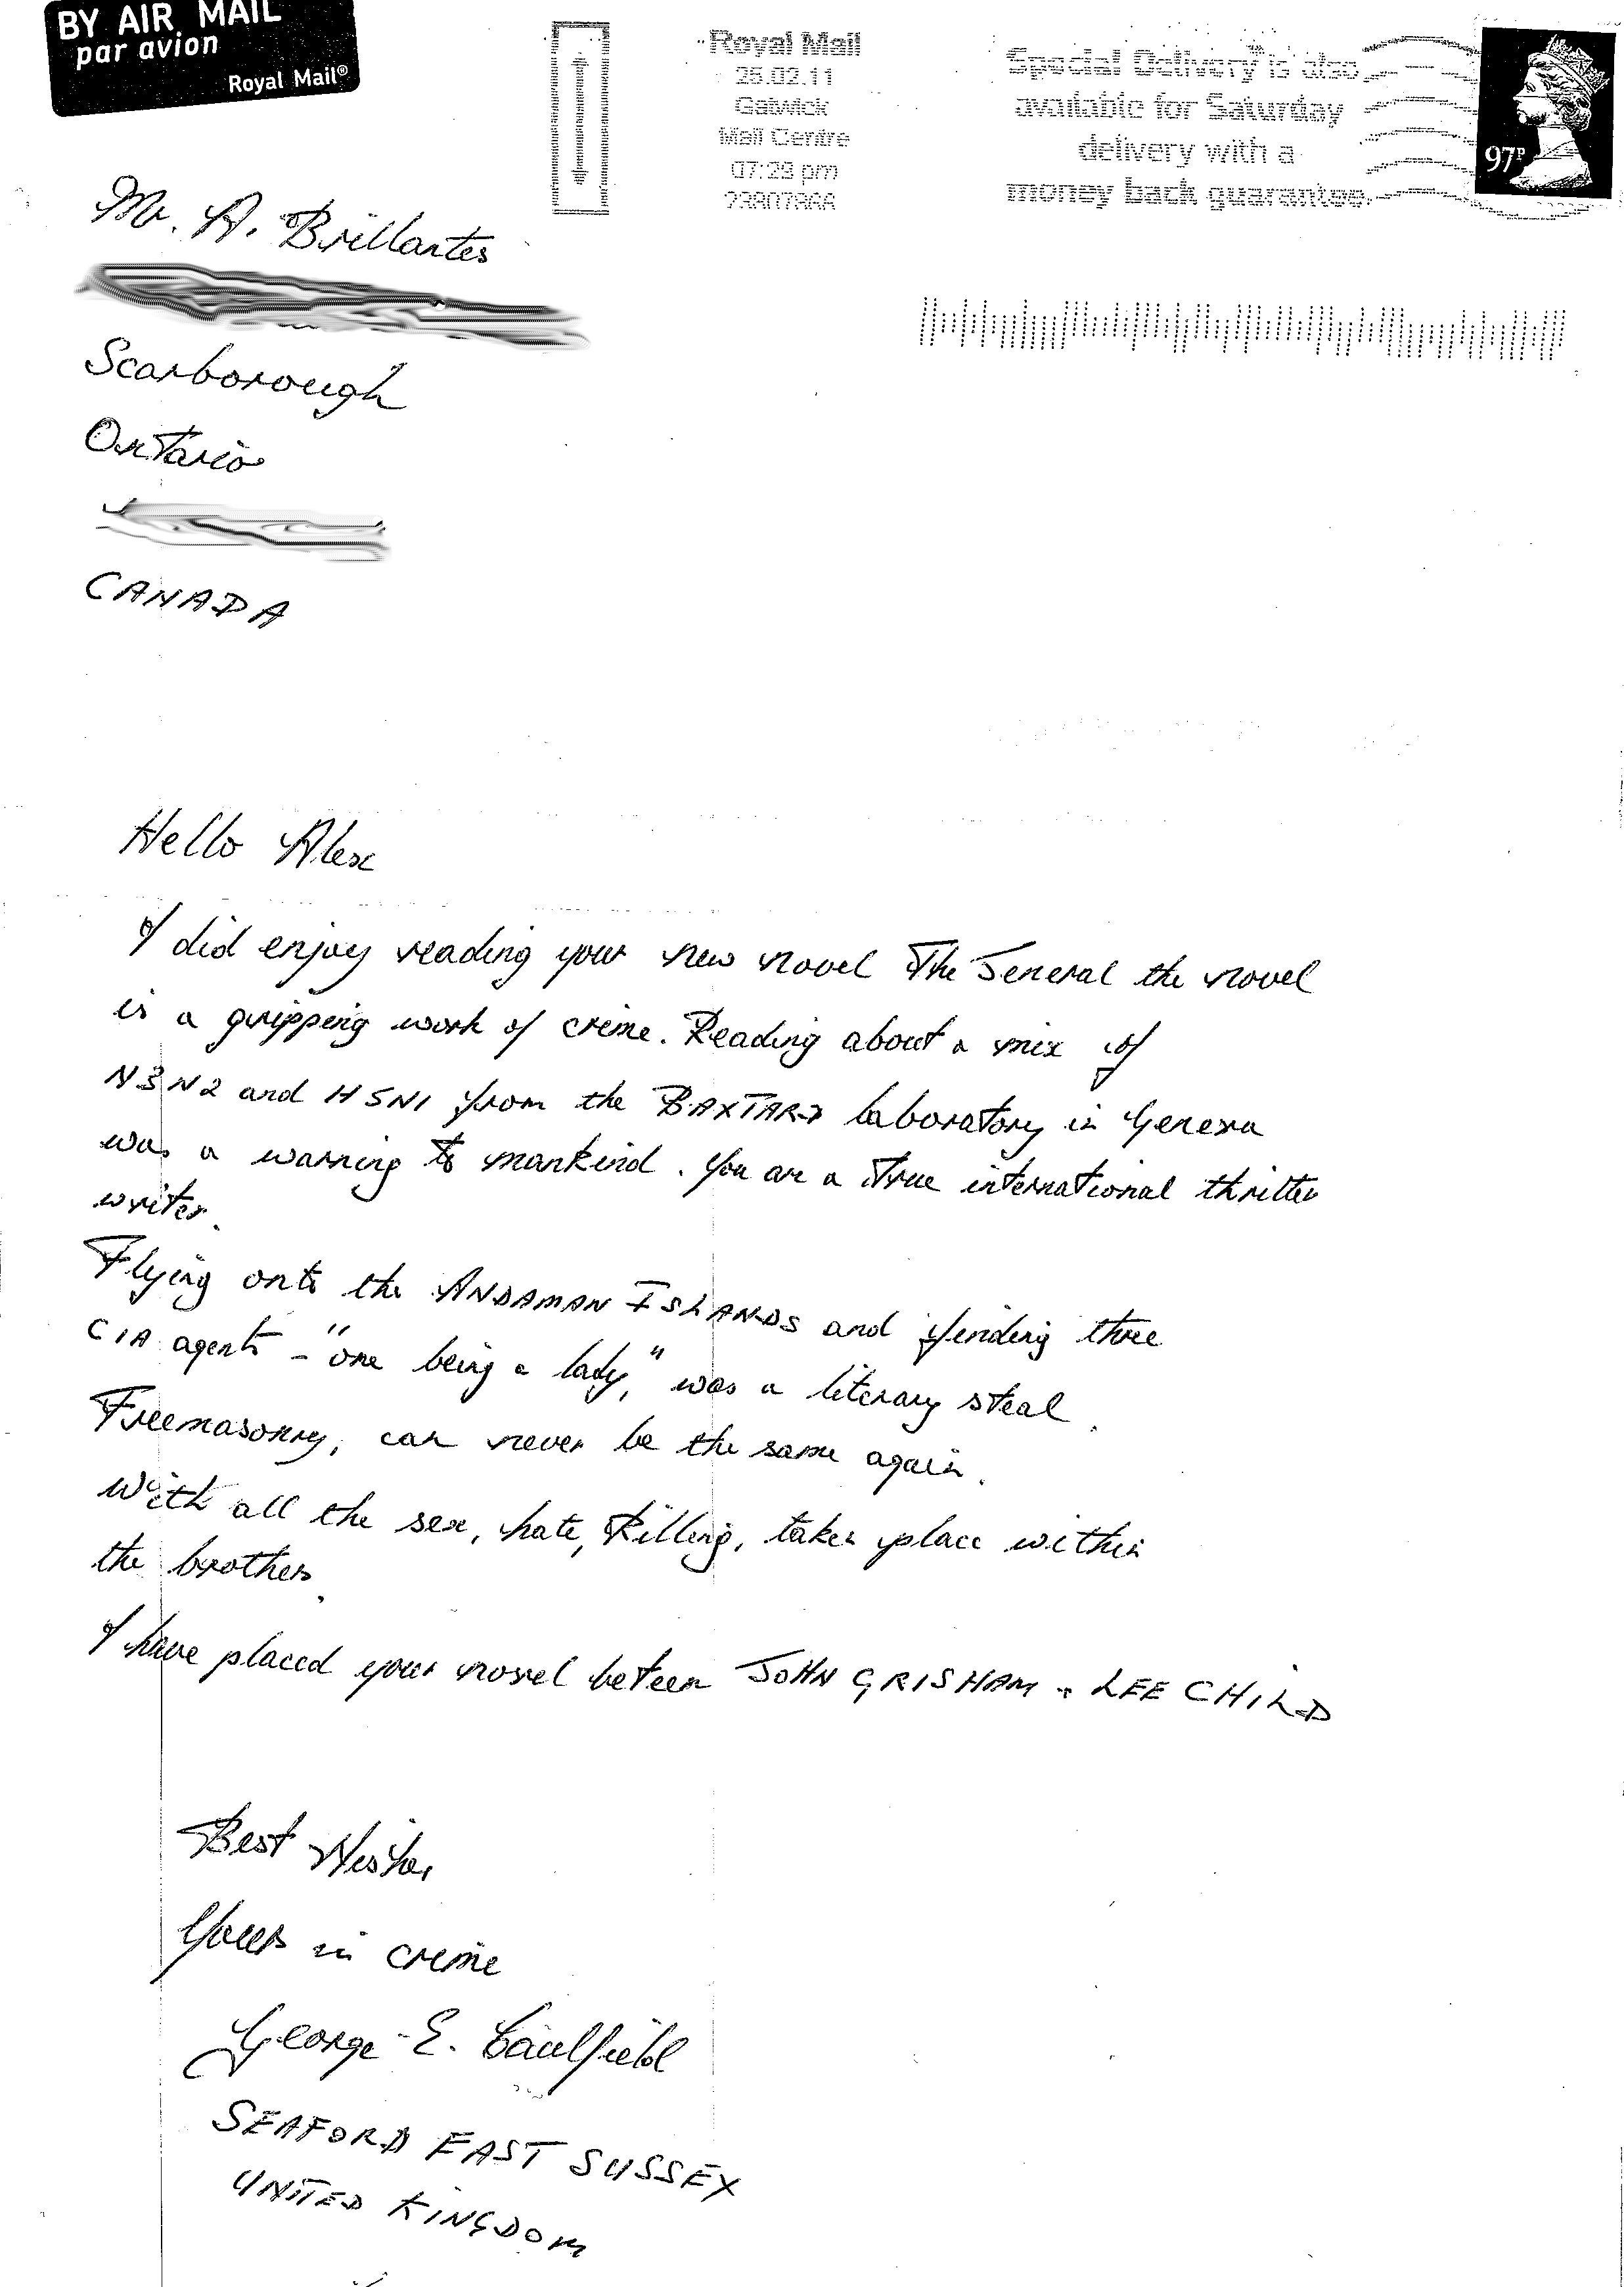 BY AIR MAIL
par avion
Royal Mail®
Royal Mail
25.02.11
Gatwick
Mail Centre
07:29 pm
Special Delivery is also
available for Saturday
delivery with a
money back guarantee.
97P
Mr. A. Brillantes
Scarborough
Ontario
CANADA
Hello Alex
I did enjoy reading your new novel The General the novel
is a gripping work of crime. Reading about a mix of
N3N2 and H5N1 from the BAXTARD laboratory in Geneva
was a warning to mankind. You are a true international thriller
writer.
Flying onto the ANDAMAN ISLANDS and finding three
CIA agents - "one being a lady," was a literary steal.
Freemasonry, can never be the same again.
With all the sex, hate, killing, takes place within
the brothers.
I have placed your novel beteen JOHN GRISHAM + LEE CHILD
Best Wishes
Yours in crime
George E. Caulfield
SEAFORD EAST SUSSEX
UNITED KINGDOM